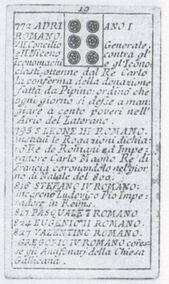 19
772 ADRI ANO I
ROMANO.
VII Concilio Generale
a II Niceno contra gl'
Iconomach gl'Icono
clasti, ottenne dal Re Carlo
la conferma della donazione
fatta da Pipino: ordinò che
ogni giorno si desse a man-
giare a cento poveri nell'
Atrio del Laterano.
795 S LEONE III ROMANO.
Instituì le Rogazioni dichia
rò Re de Romani ed Impe-
ratore Carlo Magno Re di
Francia coronandolo nel gior
no di Natale del 800.
816 STEFANO IV ROMANO:
incoronò Ludovico Pio Impe
radore in Reims.
817 PASQUALE I ROMANO
824 EUGENIO II ROMANO.
827 VALENTINO ROMANO.
GREGORIO IV ROMANO
della Chiesa
Gallicana.